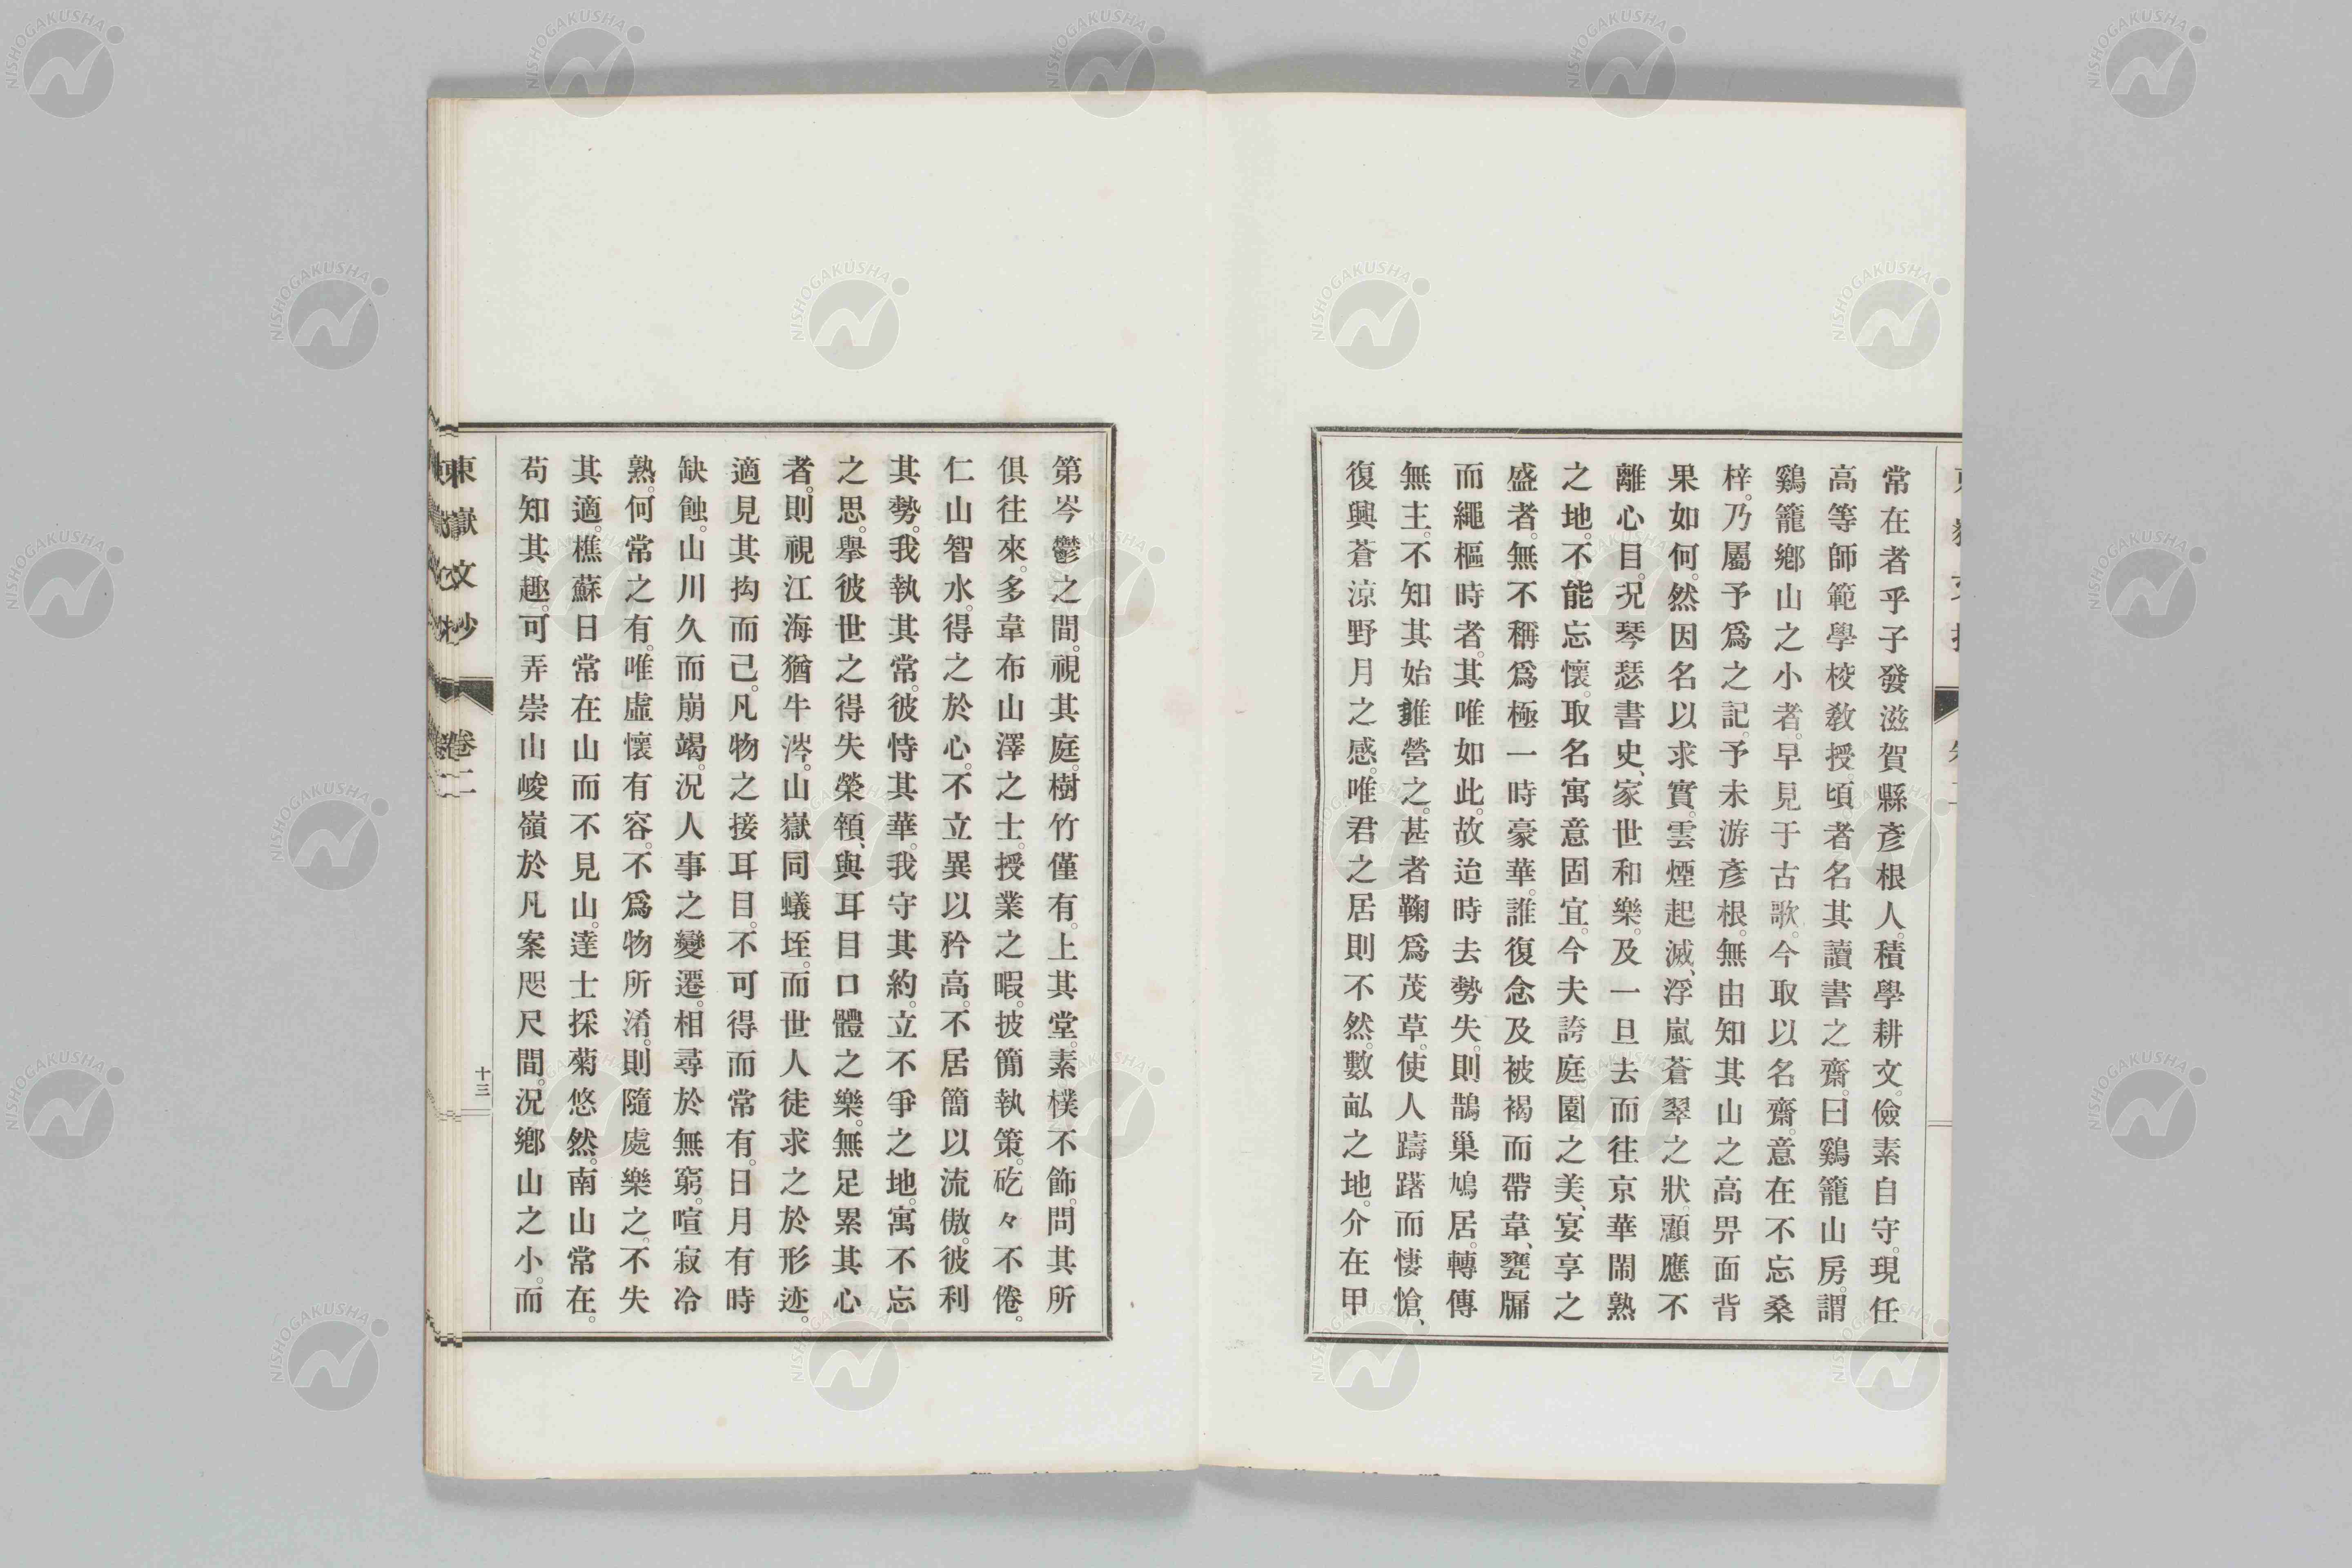 常在者乎子發滋賀縣彥根人。積學耕文。儉素自守。現任
高等師範學校敎授。頃者名其讀書之齋。曰鷄籠山房。謂
鷄籠鄕山之小者。早見于古歌。今取以名齋。意在不忘桑
梓。乃屬予爲之記。予未游彥根。無由知其山之高畀面背
果如何。然因名以求實。雲煙起滅、浮嵐蒼翠之狀。顯應不
離心目。况琴瑟書史、家世和樂。及一旦去而往京華鬧熟
之地。不能忘懷。取名寓意固宜。今夫誇庭園之美、宴享之
盛者。無不稱爲極一時豪華。誰復念及被褐而帶韋、甕牖
而繩樞時者。其唯如此。故迨時去勢失。則鵲巢鳩居。轉傳
無主。不知其始誰營之。甚者鞠爲茂草。使人躊躇而悽愴、
復興蒼涼野月之感。唯君之居則不然。數畝之地。介在甲
第岑鬱之間。視其庭。樹竹僅有。上其堂。素樸不飾。問其所
俱往來。多韋布山澤之士。授業之暇。披簡執策。矻々不倦。
仁山智水。得之於心。不立異以矜高。不居簡以流傲。彼利
其勢。我執其常。彼恃其華。我守其約。立不爭之地。寓不忘
之思。擧彼世之得失榮領、與耳目口體之樂。無足累其心
者。則視江海猶牛涔。山嶽同蟻垤。而世人徒求之於形迹。
適見其拘而已。凡物之接耳目。不可得而常有。日月有時
缺蝕。山川久而崩竭。況人事之變遷。相尋於無窮。喧寂冷
熟。何常之有。唯虛懷有容。不爲物所淆。則隨處樂之。不失
其適。樵蘇日常在山而不見山。達士採菊悠然。南山常在。
苟知其趣。可弄崇山峻嶺於凡案咫尺間。況鄕山之小。而
東嶽文抄
卷二
十三
NISHOGAKUSHA